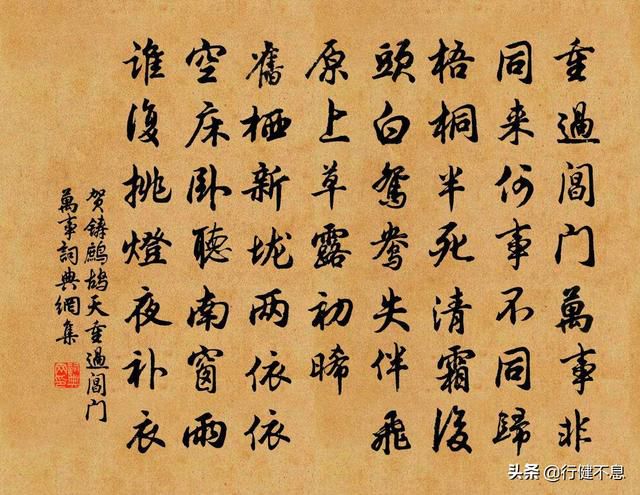 重過閶门萬事非
同来何事不同歸
梧桐半死清霜後
頭白鴛鴦失伴飛
原上草露初晞
舊栖新垅两依依
空床卧聽南窗雨
谁復挑燈夜补衣
贺鑄鷓鸪天重過閶门
萬事詞典網集
头条 @行健不息